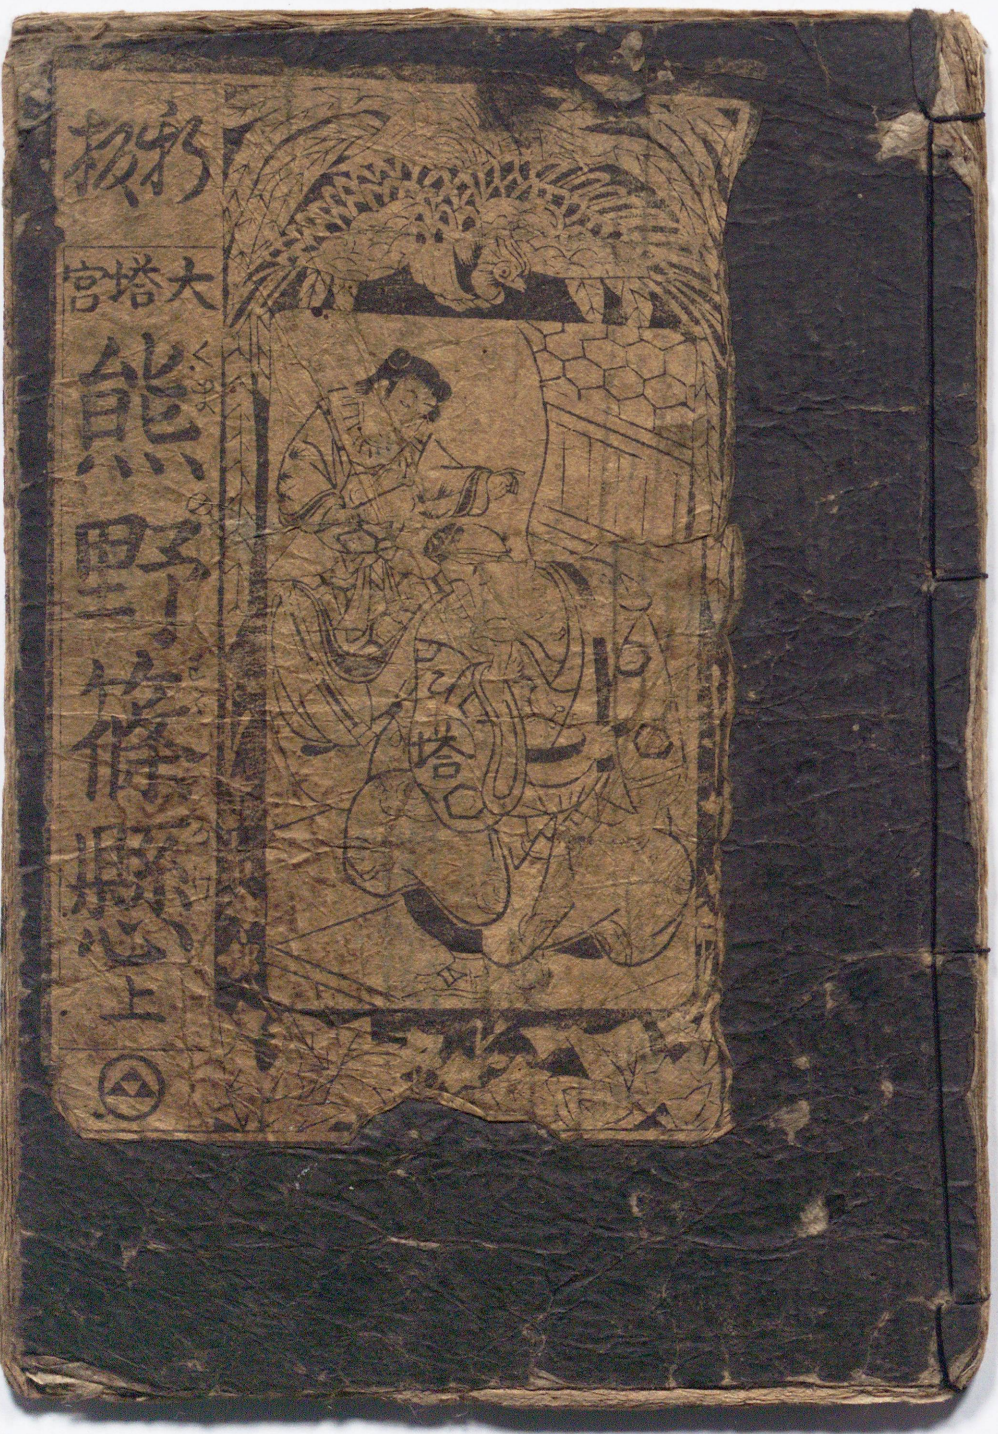 新板
大塔宮
熊野篠懸
上
塔